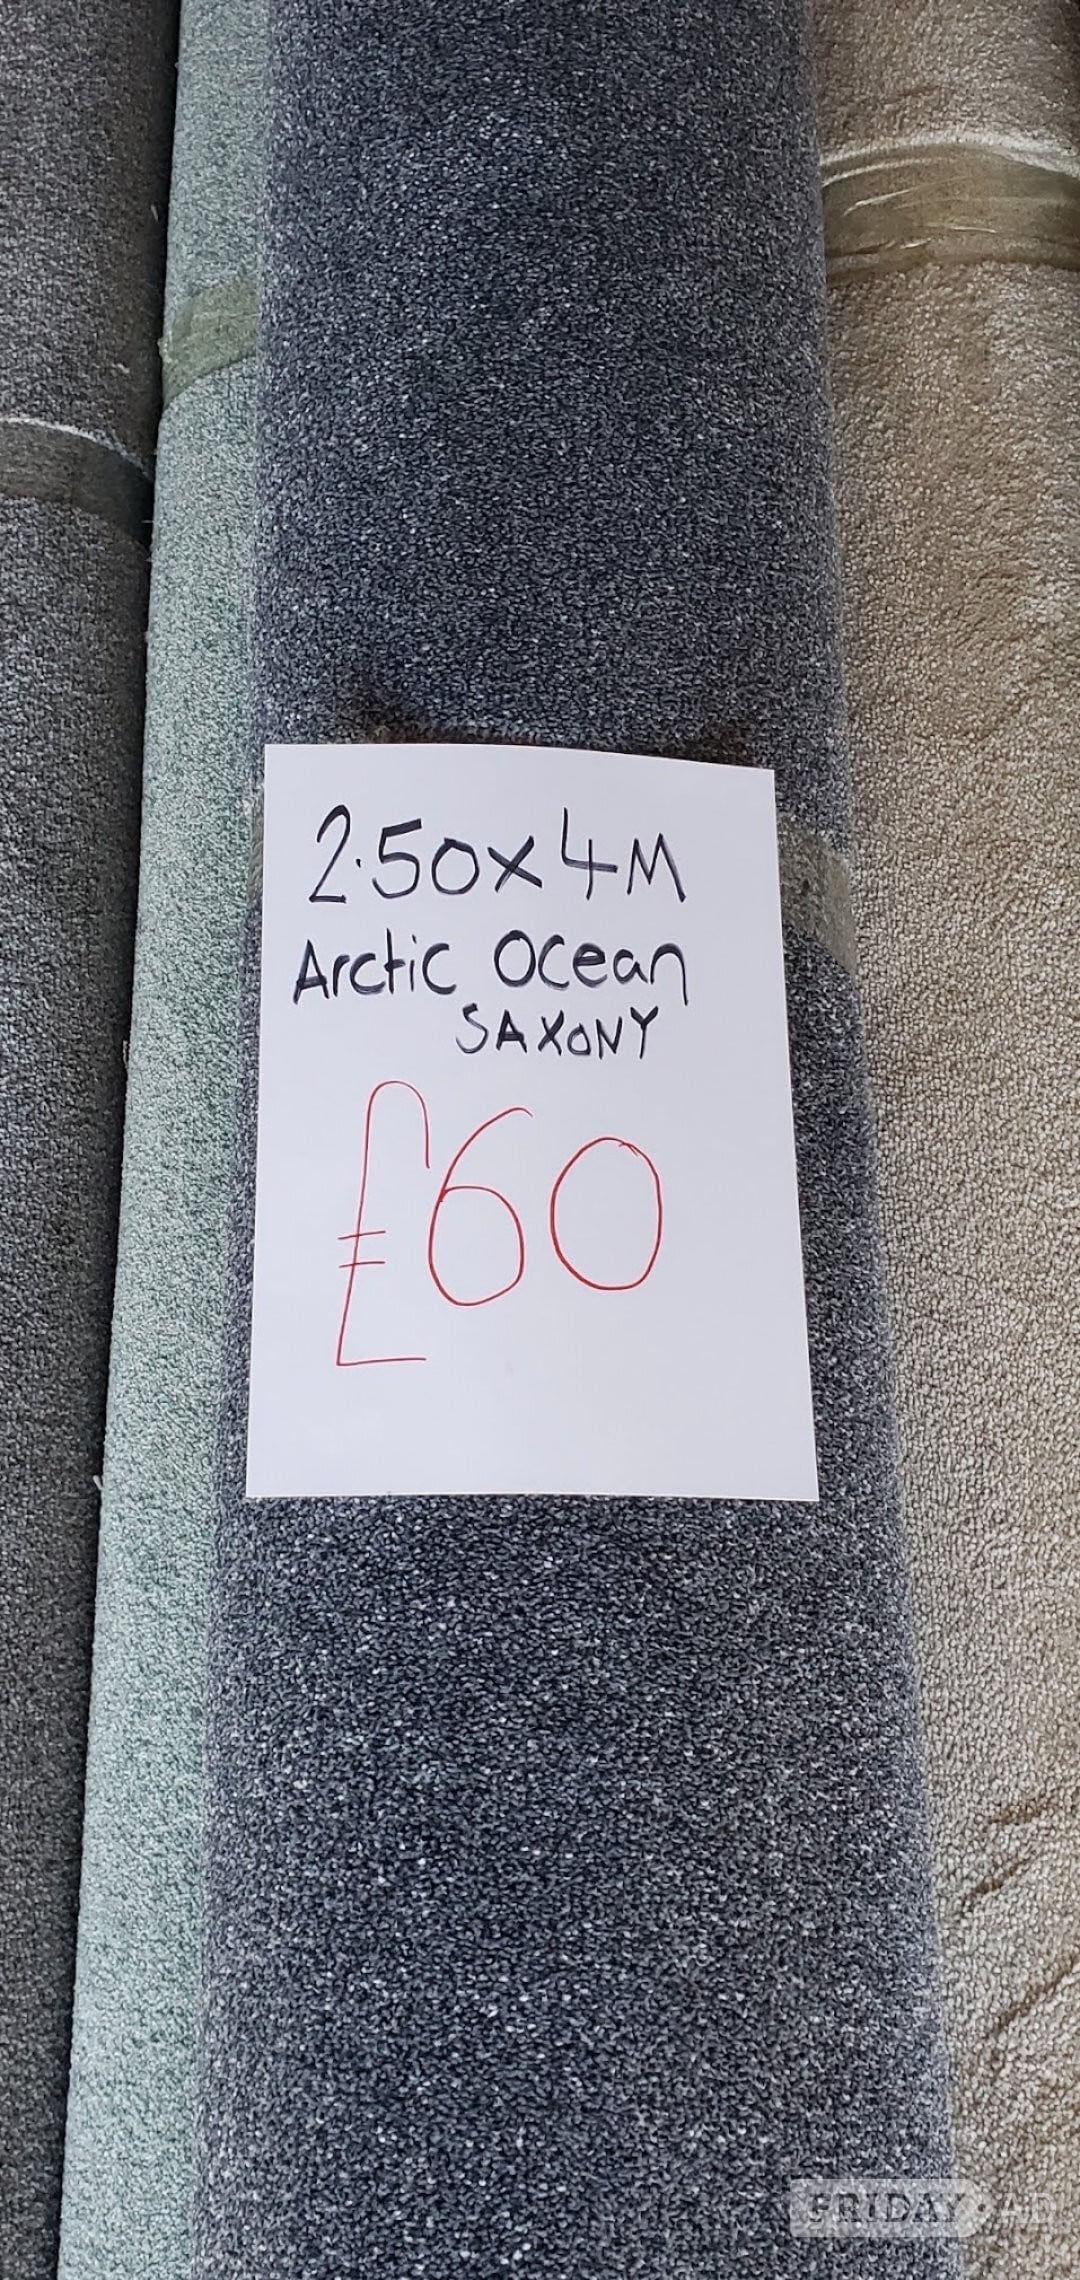 2.50x4M
Arctic Ocean
SAXONY
£60
FRIDAY-AD